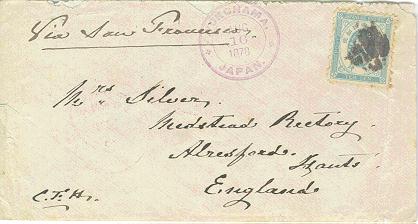 Via San Francisco
YOKOHAMA.
10
1878
JAPAN.
Mrs Silver.
Medstead Rectory.
Alresford.
Hants.
C.T.H.
England